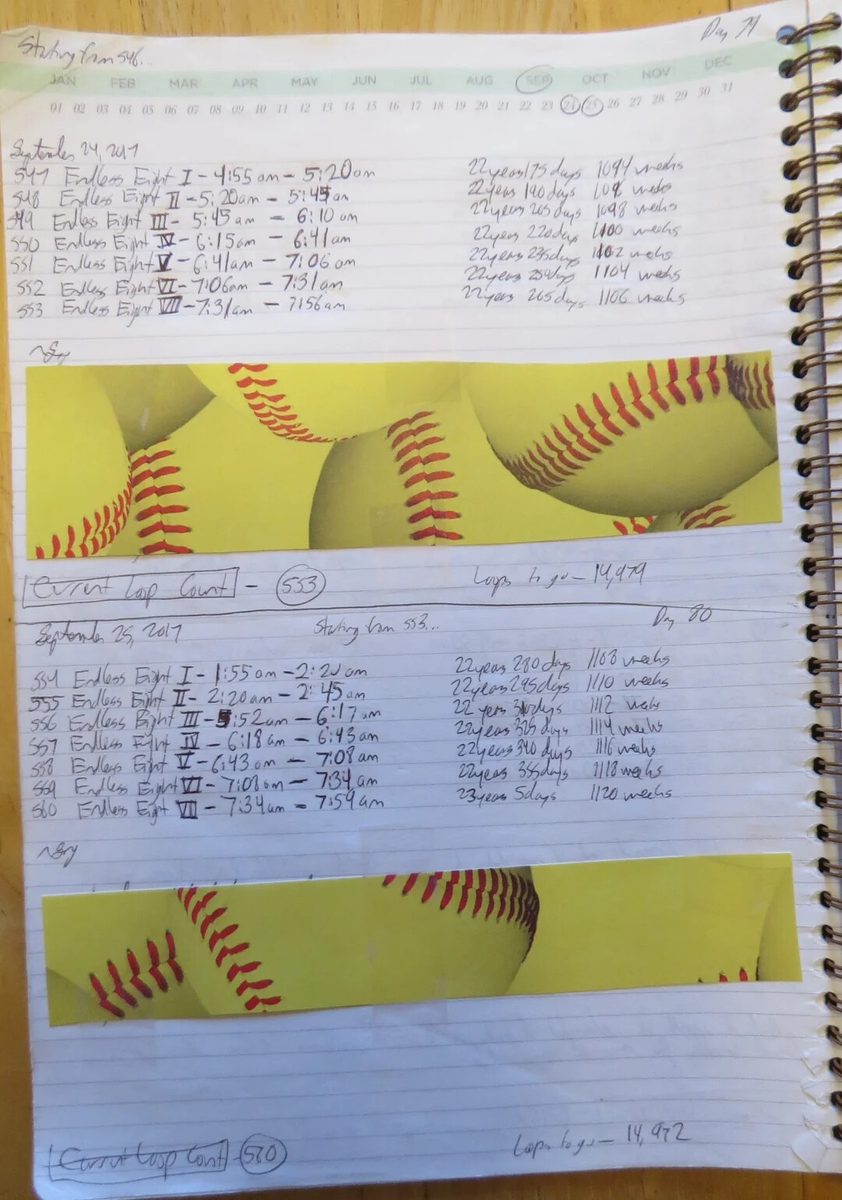 Starting from 546...
Day 79
JAN FEB MAR APR MAY JUN JUL AUG SEP OCT NOV DEC
01 02 03 04 05 06 07 08 09 10 11 12 13 14 15 16 17 18 19 20 21 22 23 24 25 26 27 28 29 30 31
September 24, 2017
547 Endless Eight I - 4:55 am - 5:20am 22years 175 days 1094 weeks
548 Endless Eight II - 5:20am - 5:45am 22years 190 days weeks
549 Endless Eight III - 5:45 am - 6:10 am 22years 205 days 1098 weeks
550 Endless Eight IV - 6:15am - 6:41am 22years 220 days 1100 weeks
551 Endless Eight V - 6:41am - 7:06 am 22years 235 days 1102 weeks
552 Endless Eight VI - 7:06am - 7:31am 22years days 1104 weeks
553 Endless Eight VII - 7:31am - 7:56am 22years 265 days 1106 weeks
Current Loop Count - 553 Loops to go - 14,979
September 25, 2017 Starting from 553... Day 80
554 Endless Eight I - 1:55 am - 2:20 am 22years 280 days 1108 weeks
555 Endless Eight II - 2:20am - 2:45am 22years 295 days 1110 weeks
556 Endless Eight III - 5:52am - 6:17am 22 years 310 days 1112 weeks
557 Endless Eight IV - 6:18am - 6:43am 22years 325 days 1114 weeks
558 Endless Eight V - 6:43 am - 7:08 am 22years 340 days 1116 weeks
559 Endless Eight VI - 7:08am - 7:34am 22years 355days 1118 weeks
560 Endless Eight VII - 7:34am - 7:59am 23years 5days 1120 weeks
Current Loop Count - 560 Loops to go - 14,972